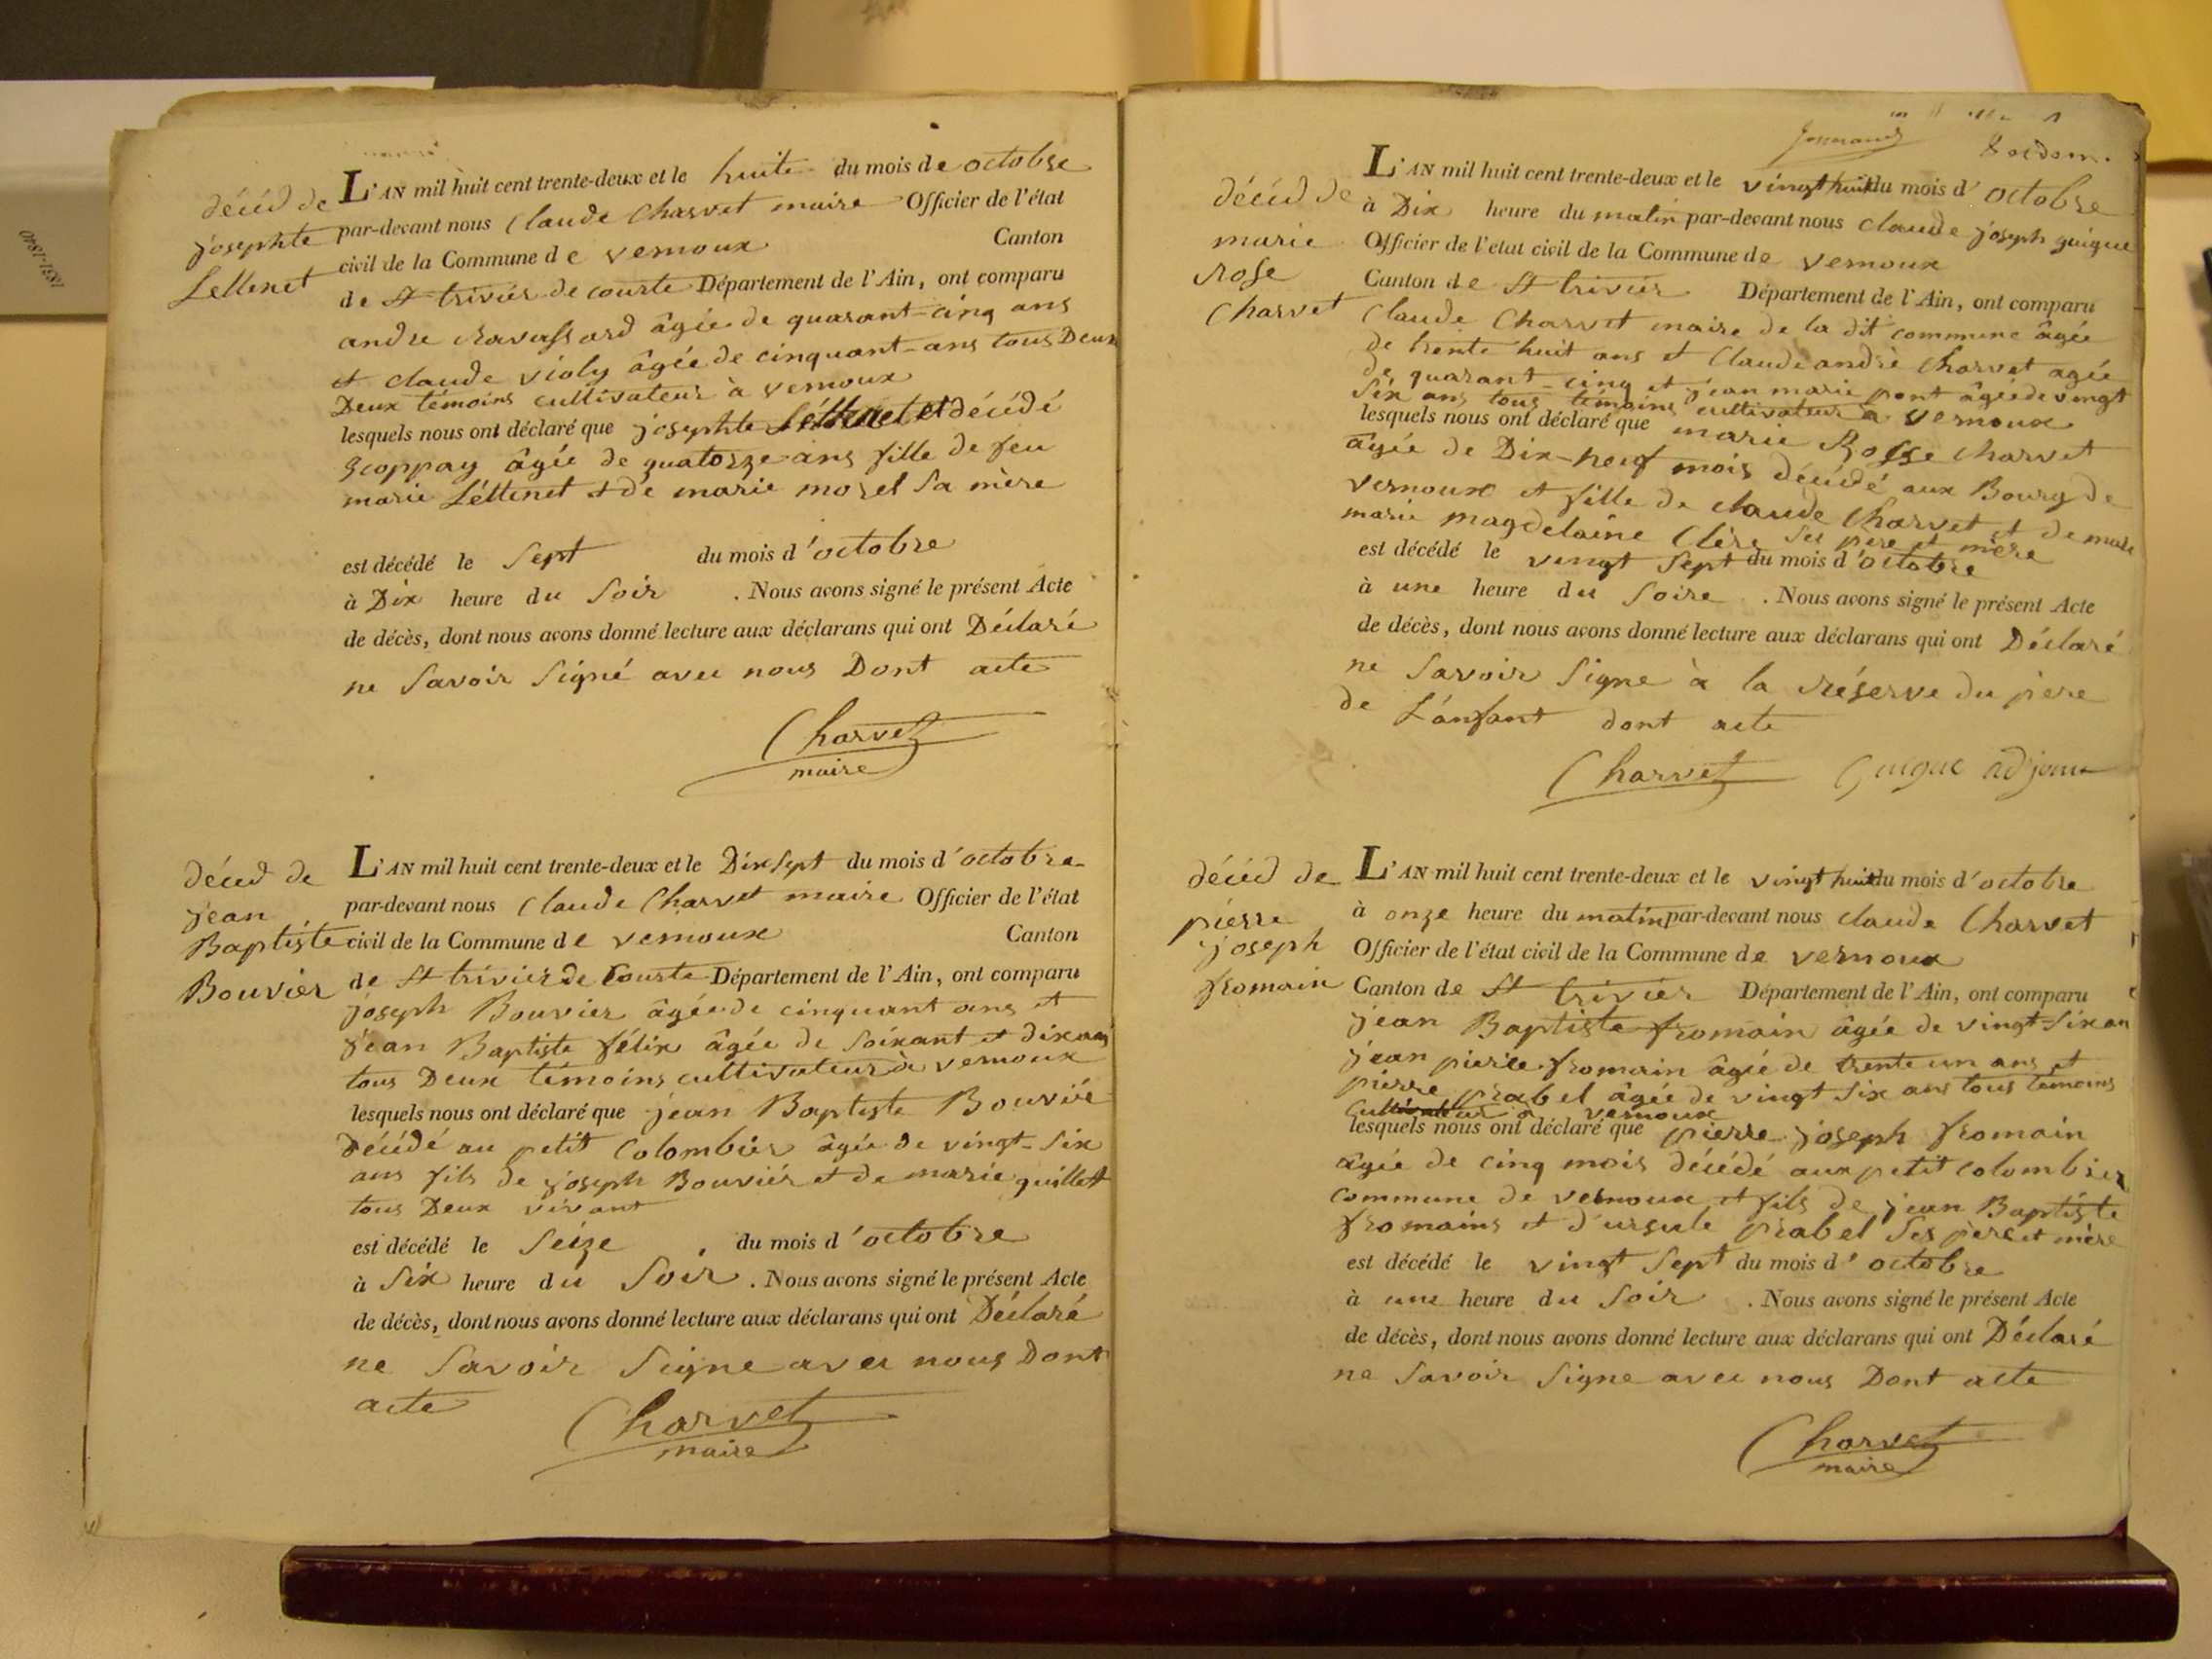 décéd de
josephte
Lettenet
L'AN mil huit cent trente-deux et le huite du mois de octobre
par-devant nous Claude Charvet maire Officier de l'état
civil de la Commune de vernoux Canton
de St trivier de courte Département de l'Ain, ont comparu
andre ravassard âgée de quarant-cinq ans
et claude violy âgée de cinquant-ans tous Deux
Deux témoins cultivateur à vernoux
lesquels nous ont déclaré que josephte décédé
âgée de quatorze ans fille de feu
marie Léttenet et de marie morel sa mère
est décédé le sept du mois d'octobre
à Dix heure du soir . Nous avons signé le présent Acte
de décès, dont nous avons donné lecture aux déclarans qui ont Déclaré
ne savoir signé avec nous Dont acte
Charvet
maire
décéd de
jean
Baptiste
Bouvier
L'AN mil huit cent trente-deux et le Dix sept du mois d'octobre
par-devant nous Claude Charvet maire Officier de l'état
civil de la Commune de vernoux Canton
de St trivier de Courte Département de l'Ain, ont comparu
joseph Bouvier âgée de cinquant ans et
jean Baptiste félix âgée de soixant et dix ans
tous Deux témoins cultivateur à vernoux
lesquels nous ont déclaré que jean Baptiste Bouvié
Décédé au petit Colombier âgée de vingt-six
ans fils de joseph Bouviér et de marie guillet
tous Deux vivant
est décédé le seize du mois d'octobre
à six heure du soir . Nous avons signé le présent Acte
de décès, dont nous avons donné lecture aux déclarans qui ont Déclaré
ne savoir signe avec nous Dont
acte
Charvet
maire
décéd de
marie
rose
Charvet
L'AN mil huit cent trente-deux et le vingt huit du mois d'octobre
à Dix heure du matin par-devant nous claude joseph guigue
Officier de l'etat civil de la Commune de vernoux
Canton de St trivier Département de l'Ain, ont comparu
Claude Charvet maire de la dit commune âgée
de trente huit ans et Claude andré Charvet agée
de quarant-cinq et jean marie pont âgée de vingt
six ans tous témoins cultivateur à vernoux
lesquels nous ont déclaré que marie Rosse charvet
âgée de Dix-neuf mois décédé aux Bourg de
vernoux et fille de claude Charvet et de
marie magdelaine Clère ses pere et mère
est décédé le vingt sept du mois d'octobre
à une heure du soire . Nous avons signé le présent Acte
de décès, dont nous avons donné lecture aux déclarans qui ont Déclaré
ne savoir signe à la réserve du pere
de L'anfant dont acte
Charvet Guigue adjoint
décéd de
pierre
joseph
fromain
L'AN mil huit cent trente-deux et le vingt huit du mois d'octobre
à onze heure du matin par-devant nous claude Charvet
Officier de l'état civil de la Commune de vernoux
Canton de St trivier Département de l'Ain, ont comparu
jean Baptiste fromain âgée de vingt-six an
jean pierre fromain âgée de trente un ans et
pierre prabel âgée de vingt six ans tous témoins
cultivateur à vernoux
lesquels nous ont déclaré que pierre joseph fromain
âgée de cinq mois décédé aux petit colombier
commune de vernoux et fils de jean Baptiste
fromains et d'ursule prabel ses pere et mère
est décédé le vingt sept du mois d'octobre
à une heure du soir . Nous avons signé le présent Acte
de décès, dont nous avons donné lecture aux déclarans qui ont Déclaré
ne savoir signe avec nous Dont acte
Charvet
maire
1831-1840